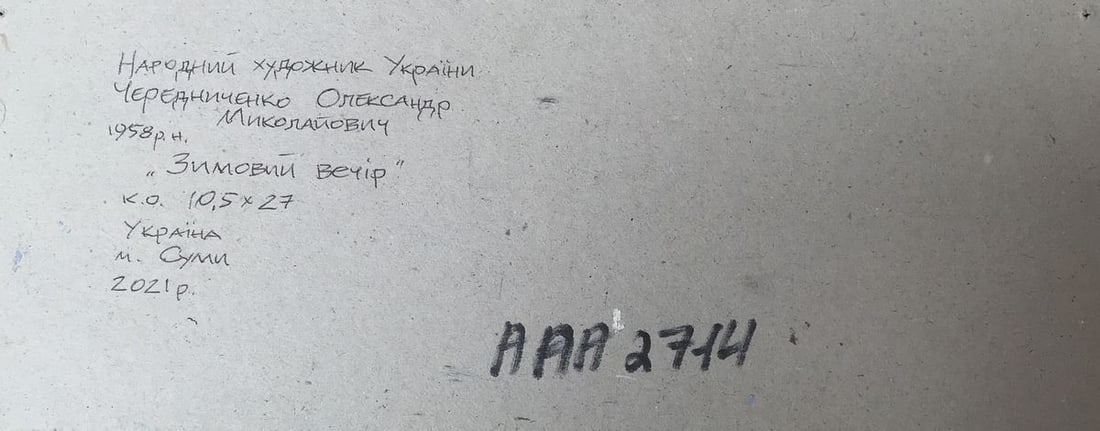 Народний художник України
Чередниченко Олександр
Миколайович
1958р.н.
„Зимовий вечір"
к.о. 10,5 x 27
Україна
м. Суми
2021р.
ААА 2714